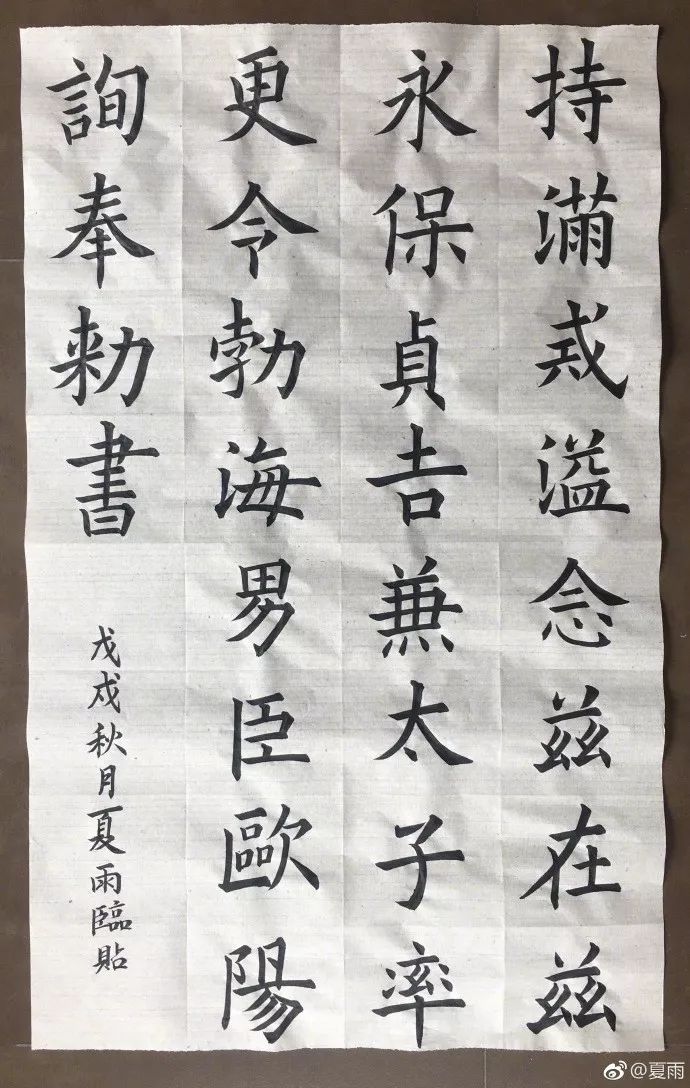 持滿戒溢念茲在茲
永保貞吉兼太子率
更令勃海男臣歐陽
詢奉勑書
戊戌秋月夏雨臨貼
@夏雨